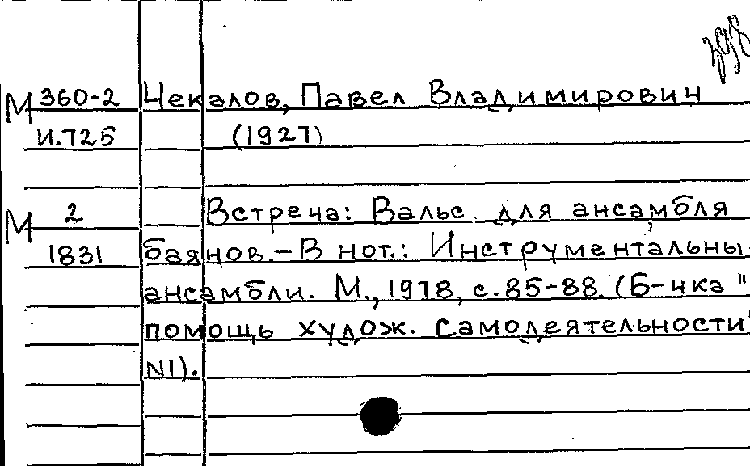 М 360-2 Чекалов, Павел Владимирович
И.725 (1927)
М 2 Встреча: Вальс для ансамбля
1831 баянов.-В нот.: Инструментальны
ансамбли. М., 1978, с.85-88. (Б-чка "
помощь худож. самодеятельности"
N1).